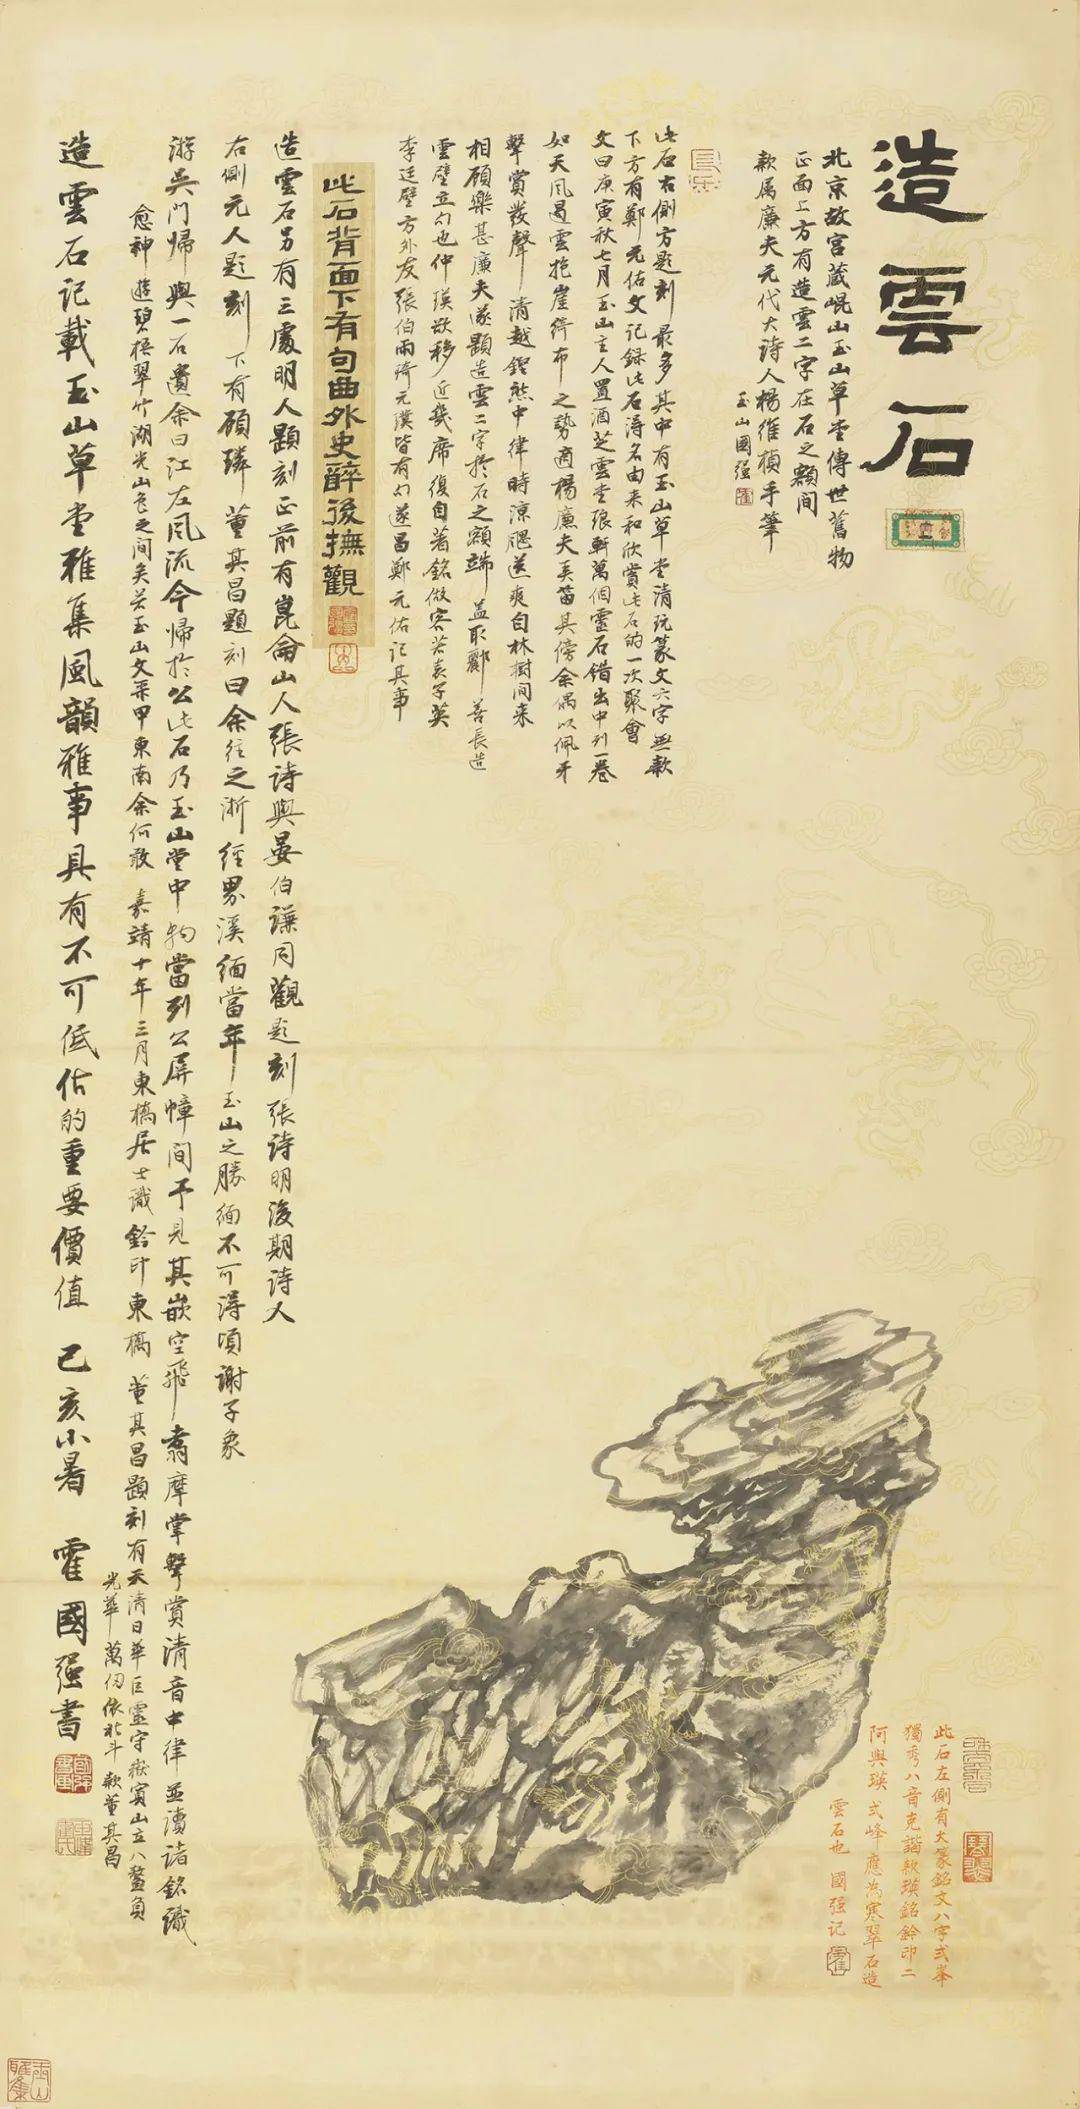 造雲石
北京故宫藏崐山玉山草堂傳世舊物
正面上方有造雲二字在石之額間
款属廉夫元代大诗人楊維楨手筆
玉山國强
此石右側方題刻最多其中有玉山草堂清玩篆文六字無款
下方有鄭元佑文記録此石得名由来和欣賞此石的一次聚會
文曰庚寅秋七月玉山主人置酒芝雲堂琅軒萬個靈石错出中列一卷
如天风遏雲抱崖缔布之勢適楊廉夫美笛其傍余偶以佩牙
擊賞發聲清越鏗然中律時涼飔送爽自林樹间来
相顧樂甚廉夫遂題造雲二字於石之额端益取酈善長造
雲壁立句也仲瑛欲移近几席復自著銘做客若袁子英
李廷璧方外友张伯雨琦元璞皆有句遂昌鄭元佑记其事
此石背面下有句曲外史醉後撫觀
造雲石另有三處明人題刻正前有崑侖山人張詩與晏伯謙同觀題刻張詩明後期诗人
右側元人题刻下有顾璘董其昌題刻曰余往之浙經界溪缅當年玉山之勝缅不可得頃谢子象
游吴門帰與一石遺余曰江左风流今歸於公此石乃玉山堂中物當列公屏幛间予見其嵌空飛翥摩掌擊賞清音中律並读诸銘識
愈神遊碧梧翠竹湖光山色之间矣若玉山文采甲東南余何敢嘉靖十年三月東橋居士識鈐印東橋董其昌題刻有天清日華巨靈守嶽寅山立八鳌負
光華萬仞依北斗款董其昌
造雲石記載玉山草堂雅集風韻雅事具有不可低估的重要價值己亥小暑霍國强書
此石左側有大篆銘文八字弍峯
獨秀八音克諧款瑛銘鈐印二
阿與瑛弍峰應為寒翠石造
雲石也國强记
玉山雅集